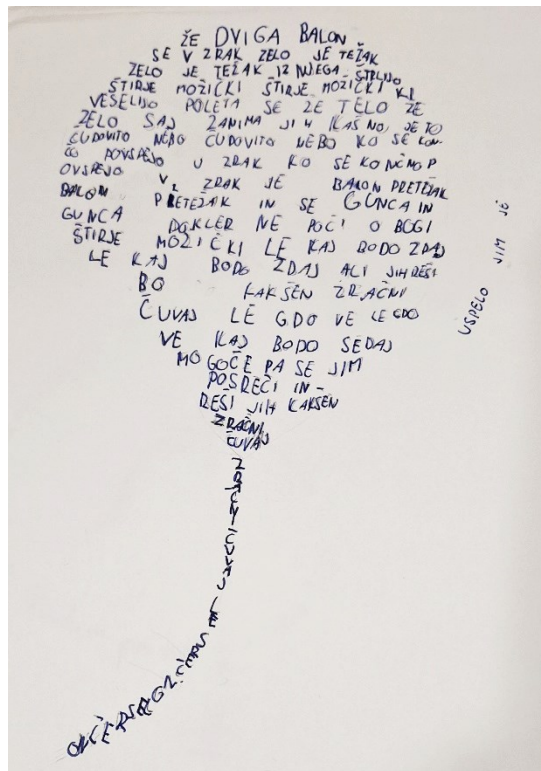 ŽE DVIGA BALON
SE V ZRAK ZELO JE TEŽAK
ZELO JE TEŽAK IZ NJEGA ŠTRLIJO
ŠTIRJE MOŽIČKI ŠTIRJE MOŽIČKI KI
VESELIJO POLETA SE ŽE TELO ŽE
ZELO SAJ ZANIMA JIH KAŠNO JE TO
ČUDOVITO NEBO ČUDOVITO NEBO KO SE KON-
ČO POVSPEJO V ZRAK KO SE KONČNO P
OVSPEJO V ZRAK JE BALON PRETEŽAK
BALON PRETEŽAK IN SE GUNCA IN
GUNCA DOKLER NE POČI O BOGI
ŠTIRJE MOŽIČKI LE KAJ BODO ZDAJ
LE KAJ BODO ZDAJ ALI JIH REŠI
BO KAKŠEN ZRAČNI
ČUVAJ LE GDO VE LE GDO
VE KAJ BODO SEDAJ
MOGOČE PA SE JIM
POSREČI IN-
REŠI JIH KAKŠEN
ZRAČNI
ČUVAJ
ZRAČNI ČUVAJ
USPELO JIM JE